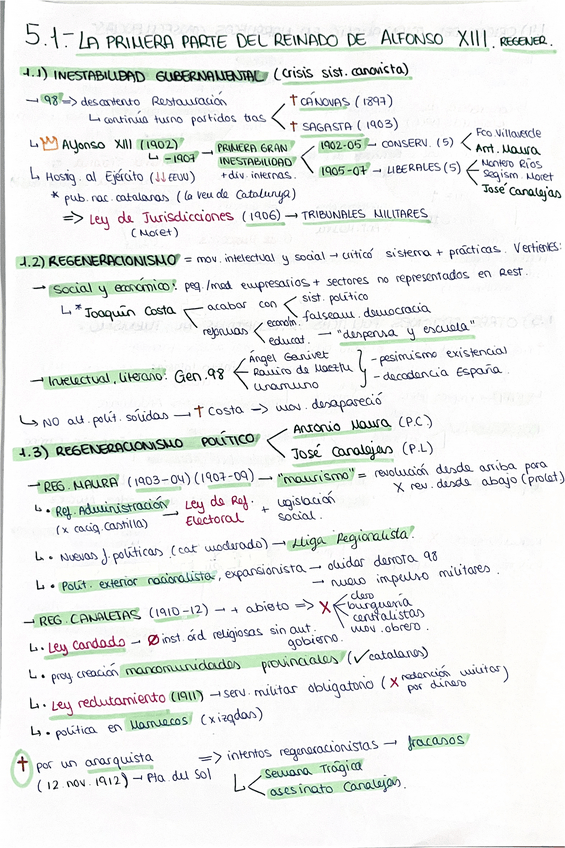 5.1.- LA PRIMERA PARTE DEL REINADO DE ALFONSO XIII. REGENER.
1.1) INESTABILIDAD GUBERNAMENTAL (crisis sist. canovista)
→ 98 => descontento Restauración
↳ continúa turno partidos tras < † CÁNOVAS (1897)
† SAGASTA (1903)
↳ Alfonso XIII (1902)
↳ -1907 → PRIMERA GRAN INESTABILIDAD
+ div. internas.
1902-05 → CONSERV. (5) < Fco Villaverde
Ant. Maura
1905-07 → LIBERALES (5) < Montero Ríos
Segism. Moret
José Canalejas
↳ Hostig. al Ejército (↓↓ EEUU)
* pub. nac. catalanas (la veu de Catalunya)
=> Ley de Jurisdicciones (1906) → TRIBUNALES MILITARES
(Moret)
1.2) REGENERACIONISMO = mov. intelectual y social → criticó sistema + prácticas. Vertientes:
→ social y económico: peq./med empresarios + sectores no representados en Rest.
↳ * Joaquín Costa < acabar con < sist. político
falseam. democracia
reformas < económ.
educat. → "despensa y escuela"
→ Intelectual, literario: Gen. 98 < Ángel Ganivet
Ramiro de Maeztu
Unamuno
} - pesimismo existencial
- decadencia España.
↳ NO alt. polít. sólidas → † Costa → mov. desapareció
1.3) REGENERACIONISMO POLÍTICO < Antonio Maura (P.C.)
José Canalejas (P.L)
→ REG. MAURA (1903-04) (1907-09) → "maurismo" = revolución desde arriba para
X rev. desde abajo (prolet)
↳ • Ref. Administración → Ley de Ref. Electoral + legislación social.
(x caciq. castilla)
↳ • Nuevas f. políticas (cat moderado) → Lliga Regionalista.
↳ • Polít. exterior nacionalista, expansionista → olvidar derrota 98
→ nuevo impulso militares.
→ REG. CANALETAS (1910-12) → + abierto => X < clero
burguería
centralistas
mov. obrero.
↳ • Ley candado → Ø inst. órd religiosas sin aut. gobierno.
↳ • proy creación mancomunidades provinciales (✓catalanes)
↳ • Ley reclutamiento (1911) → serv. militar obligatorio (X redención militar por dinero)
↳ • política en Marruecos (x izqdas)
† por un anarquista
(12. nov. 1912) → Pta. del Sol
=> intentos regeneracionistas → fracasos
↳ < Semana Trágica
asesinato Canalejas.